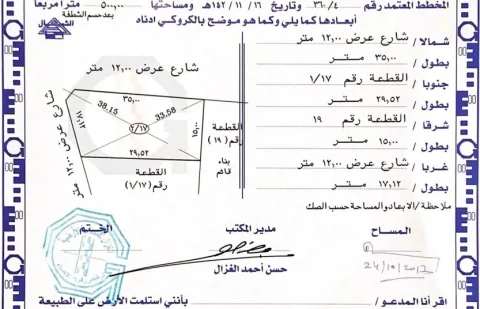 المخطط المعتمد رقم ٣٦٠/٤ وتاريخ ١٤٢١/١١/١٦ ومساحتها ٥٠٠,٠٠ متراً مربعاً
بعد حسم الشطفة
أبعادها كما يلي وكما هو موضح بالكروكي ادناه
الشمال
شمالا / شارع عرض ١٢,٠٠ متر
بطول / ٣٥,٠٠ متر
جنوبا / القطعة رقم ١/١٧
بطول / ٢٩,٥٢ متر
شرقا / القطعة رقم ١٩
بطول / ١٥,٠٠ متر
غربا / شارع عرض ١٢,٠٠ متر
بطول / ١٧,١٢ متر
ملاحظة / الابعاد والمساحة حسب الصك
شارع عرض ١٢,٠٠ متر
٣٥,٠٠
38.15
33.58
٢/١٧
١٥,٠٠
١٧,١٢
٢٩,٥٢
شارع عرض ١٢,٠٠ متر
القطعة
رقم (١/١٧)
القطعة
(١٩)
بناء
قائم
المساح
مدير المكتب
الختم
حسن أحمد الغزال
24/10/2017
اقر أنا المدعو / بأنني استلمت الأرض على الطبيعة